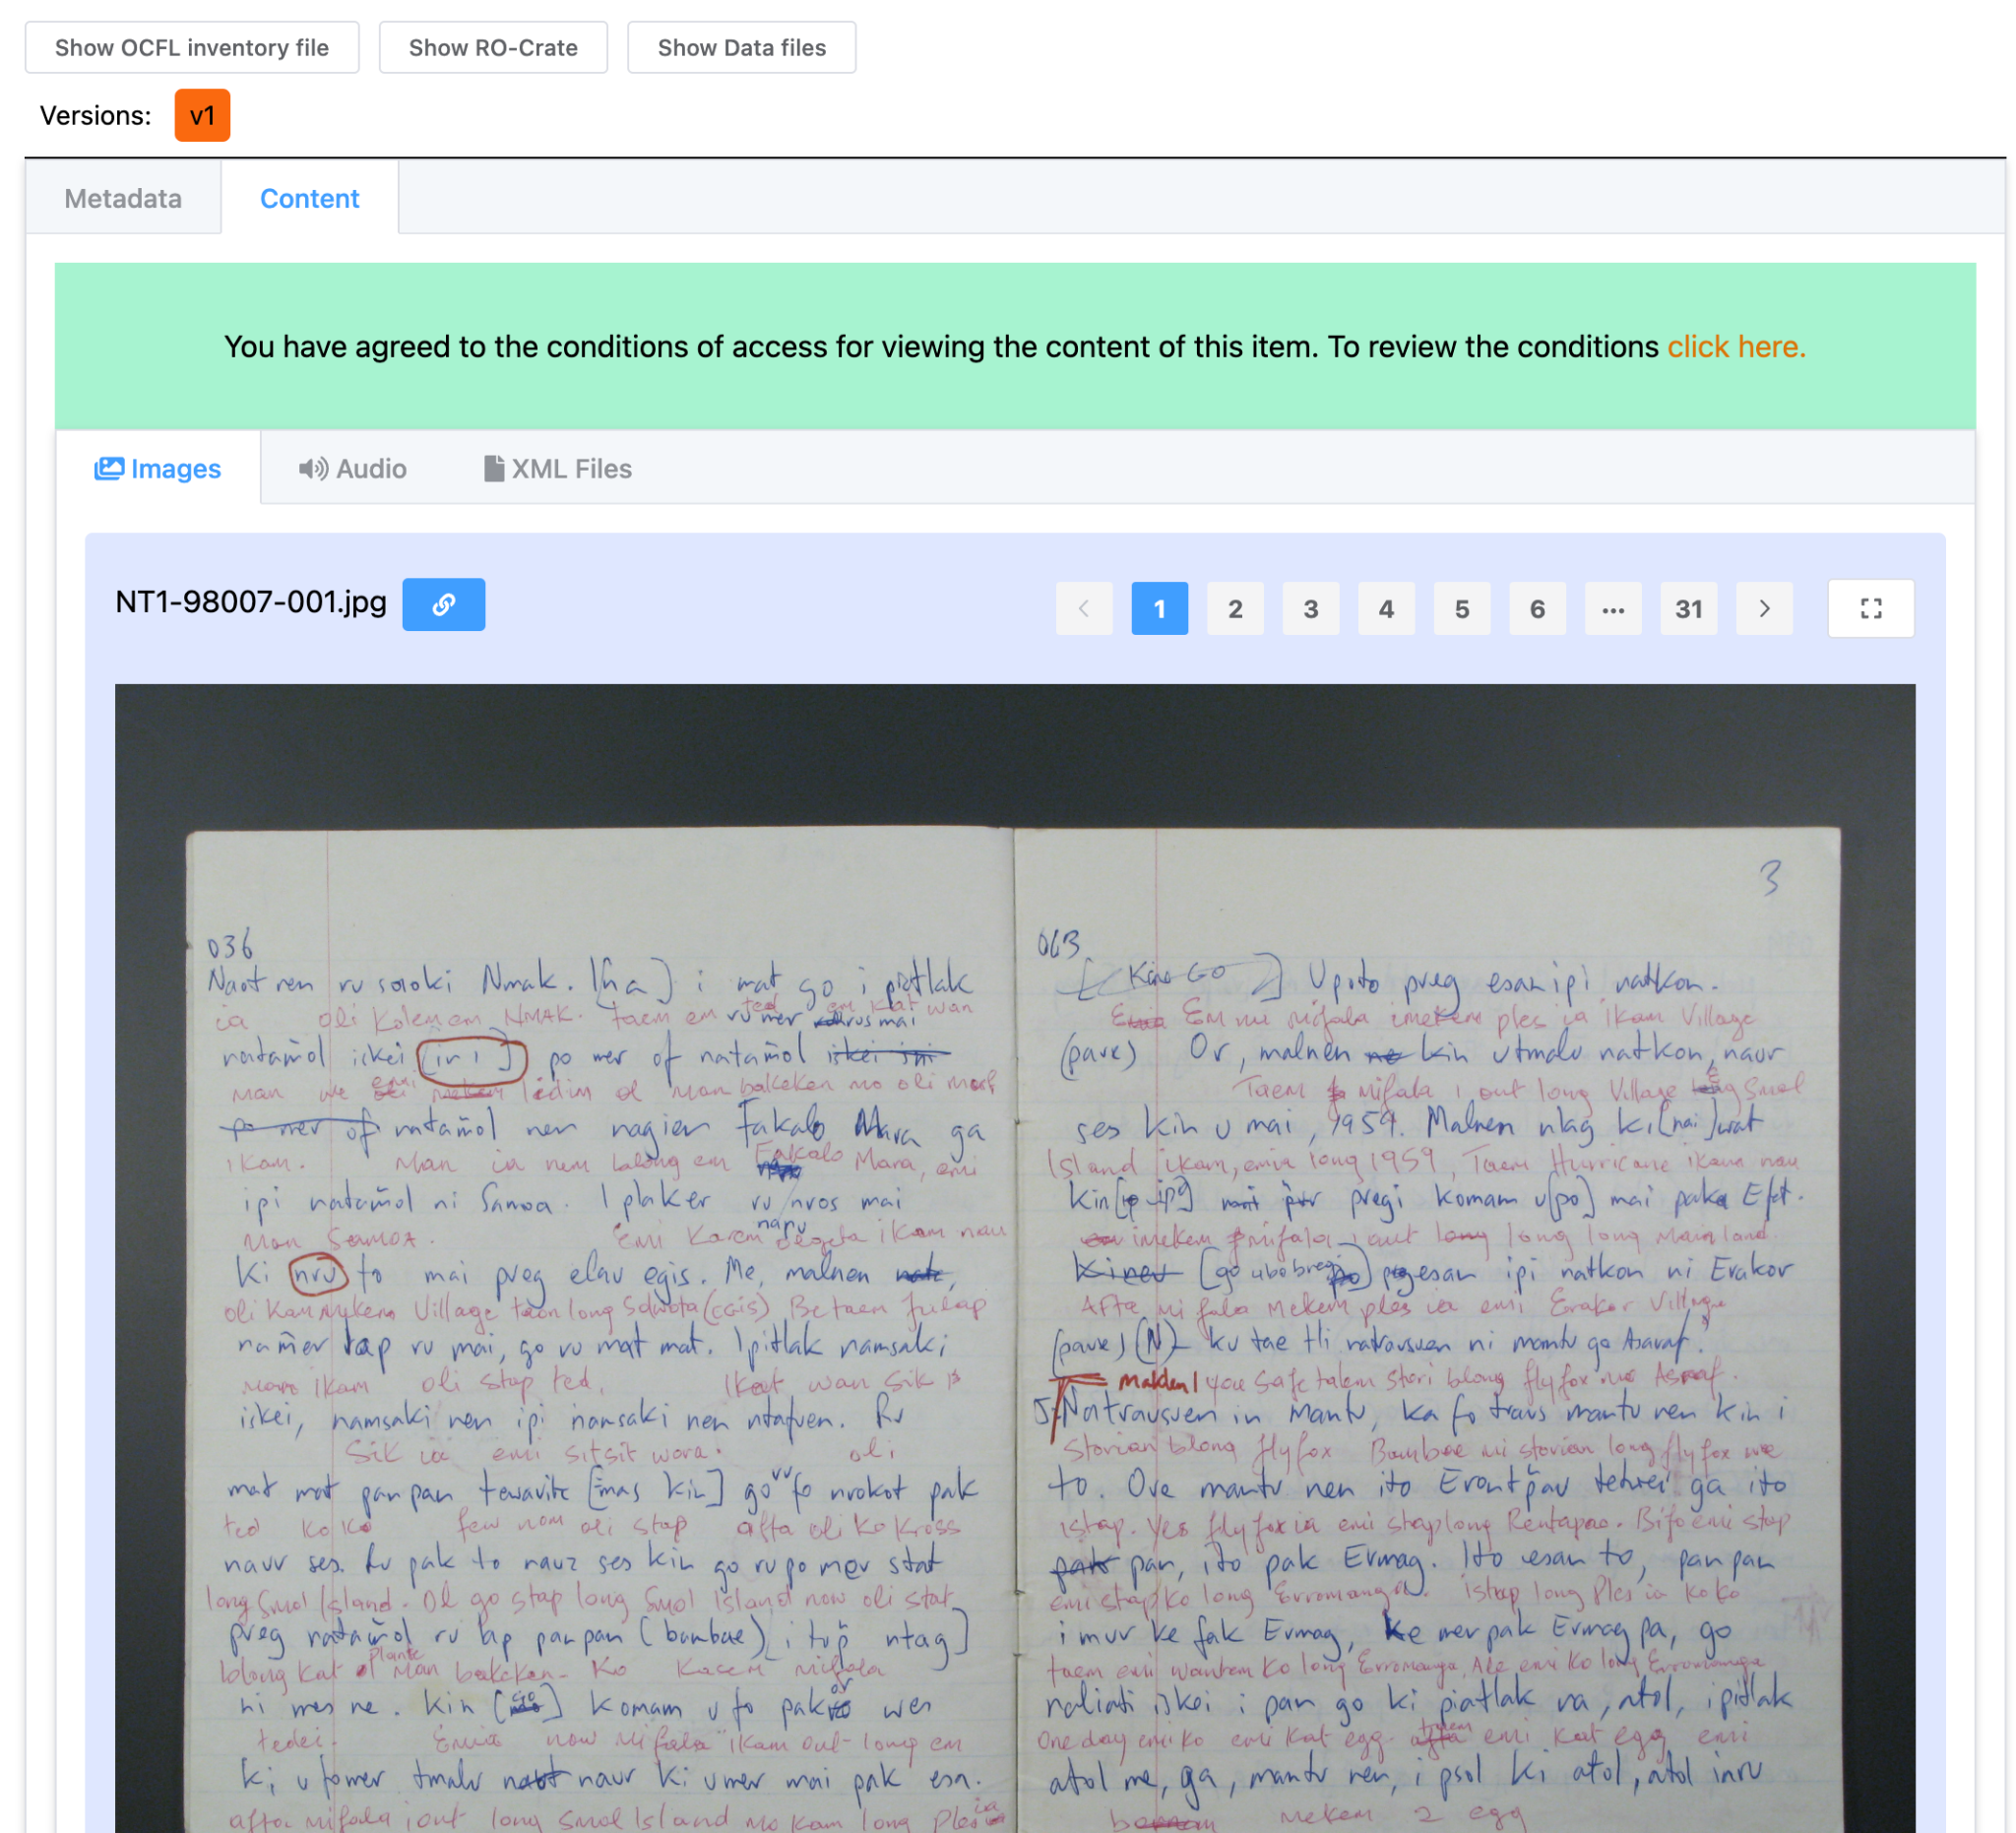 Show OCFL inventory file Show RO-Crate Show Data files
Versions: v1
Metadata Content
You have agreed to the conditions of access for viewing the content of this item. To review the conditions click here.
Images Audio XML Files
NT1-98007-001.jpg 1 2 3 4 5 6 ... 31
036
Naot nen ru soloki Nmak. i mat go i pitlak
ia oli kolem em NMAK. Taem em ted em kat wan
ru mer nros mai
natam̃ol iskei [in i] po mer of natam̃ol iskei ini
man we emi lidim ol man bakeken mo oli mas
po mer of natam̃ol nen nagien Fakalo Mara ga
ikam. Man ia nem blong em Fakalo Mara, emi
ipi natam̃ol ni Samoa. I plaker ru nros mai
Man Samoa. Emi Karem naru ikam nau
ki nru to mai preg elau egis. Me, malnen
oli kam mekem Village taon long (EGIS) Be taem fulap
nam̃er lap ru mai, go ru mat mat. Ipitlak namsaki
man ikam oli stap ted, Ikat wan sik
iskei, namsaki nen ipi namsaki nen ntafuen. Ru
Sik ia emi sitsit wora. oli
mat mat pan pan tewavite [mas kin] go fo nrokot pak
ted ko ko few nom oli stap afta oli ko kross
naur ses. Ru pak to naur ses kin go ru po mer stat
long smol Island. Ol go stap long smol island now oli stat
preg natam̃ol ru lap pan pan (bambae) i tup̃ ntag]
blong kat plante man bakeken - ko kasem mifala
ni mes ne. Kin komam u fo pak wes
tedei. Emia now mifala ikam out long em
ki u fo mer tmalu naur ki u mer mai pak esa.
afta mifala i out long smol Island mo kam long ples ia
3
063
[Kine GO] Upoto preg esan ipi natkon.
Em mi mifala imekem ples ia ikam Village
(pause) Or, malnen ne kin utmalu natkon, naur
Taem mifala i out long Village long smol
ses kin u mai, 1959. Malnen nlag ki [nai] wat
Island ikam, emia long 1959, Taem Hurricane ikam nau
kin pregi komam u[po] mai paka Efat.
imekem mifala i out long long long Mainland.
Kineu [go ubo breg] esan ipi natkon ni Erakor
Afta mifala mekem ples ia emi Erakor Village
(pause) (N) - ku tae tli natrausuen ni mantu go Asaraf?
Malden / you safe talem stori blong flyfox mo Asaraf.
J: Natrausuen in mantu, ka fo traus mantu nen kin i
Storian blong flyfox Bambae mi storian long flyfox we
to. Ore mantu nen ito Erontp̃au tehei ga ito
istap. Yes flyfox ia emi stap long Rentapao. Bifo emi stap
pak pan, ito pak Ermag. Ito esan to, pan pan
emi stap ko long Erromanga. istap long ples ia ko ko
i mur ke fak Ermag, ke mer pak Ermag pa, go
taem emi wantem ko long Erromanga, Ale emi ko long Erromanga
naliati iskei i pan go ki piatlak na, atol, ipitlak
One day emi ko emi kat egg. afta taem emi kat egg emi
atol me, ga, mantu nen, i psol ki atol, atol inru
mekem 2 egg